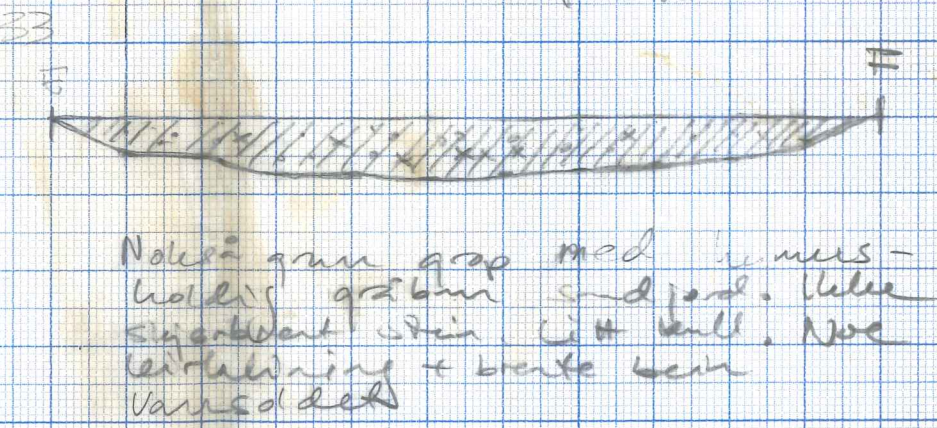 33
E F
Nokså grunn grop med humus-
holdig gråbrun sandjord. Ikke
skjørbrent stein. Litt kull. Noe
leirklining + brente bein